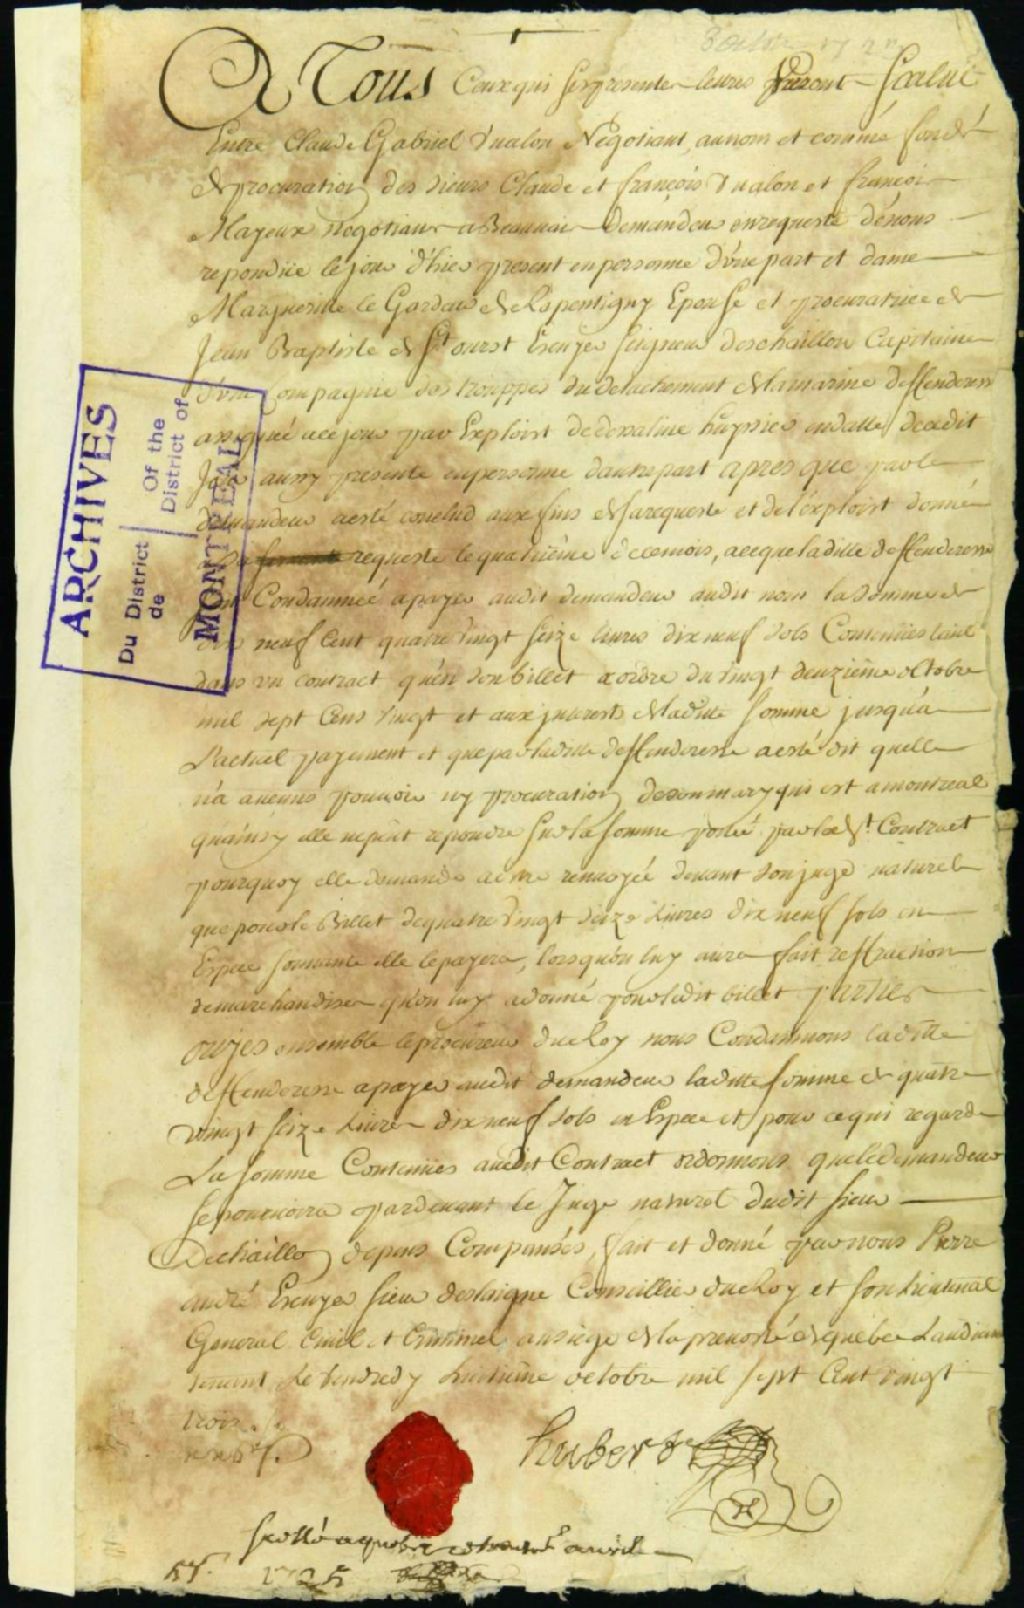 A Tous Ceux qui ses presentes lettres verront Salut
Entre Claude Gabriel Dualon Negotiant, au nom et comme fondé
de procuration des sieurs Claude et françois Dualon et françois
Mayeux negotians a Beauuais Demandeur en requeste dénous
repondüe le jour d'hier present en personne d'vne part et dame
Marguerite le Gardeur de Repentigny Epouse et procuratrice de
Jean Baptiste de St ours Escuyer seigneur deschaillon Capitaine
d'vne Compagnie des trouppes du detachement de la marine deffenderesse
assignée a ce jour par Exploit de huissier en datte dudit
jour aussy presente en personne dautre part apres que par le
demandeur a esté conclud aux fins de sa requeste et de l'exploit donné
requeste le quatrième de ce mois, a ce que ladite deffenderesse
Condamnée a payer audit demandeur audit nom la somme de
neuf Cent quatre vingt seize liures dix neuf sols Contenües tant
dans vn contract qu'en son billet a ordre du vingt deuzième octobre
mil sept Cens vingt et aux jnterests de laditte somme jusqu'a
L'actuel payement et que par laditte deffenderesse a esté dit quelle
n'a aucuns pouuoir ny procuration de son mary qui est a montreal
qu'ainsy elle ne peut repondre sur la somme portée par led.t Contract
pourquoy elle demande a estre renuoyée deuant son juge naturel
que pour le Billet de quatre vingt seize Liures dix neuf sols en
Espece sonnante elle le payera, lors qu'on luy aura fait reffraction
de marchandises qu'on luy a donné pour ledit billet parties
ouyes ensemble le procureur du Roy nous Condamnons laditte
deffenderesse a payer audit demandeur laditte somme de quatre
vingt seize Liures dix neuf sols en Espece et pour ce qui regarde
La somme Contenües audit Contract ordonnons que le demandeur
se pouruoira pardeuant le Juge naturel dudit sieur
Dechaillon depens Compensés, fait et donné par nous Pierre
andré Escuyer sieur deleigne Conseiller du Roy et son Lieutenant
General Ciuil et Criminel au siege de la preuosté de quebec Laudiance
tenant Le vendredy huitième octobre mil sept Cent vingt
trois
hubert
scellé a quebec auril
1725
ARCHIVES
Du District de
Of the District of
MONTREAL